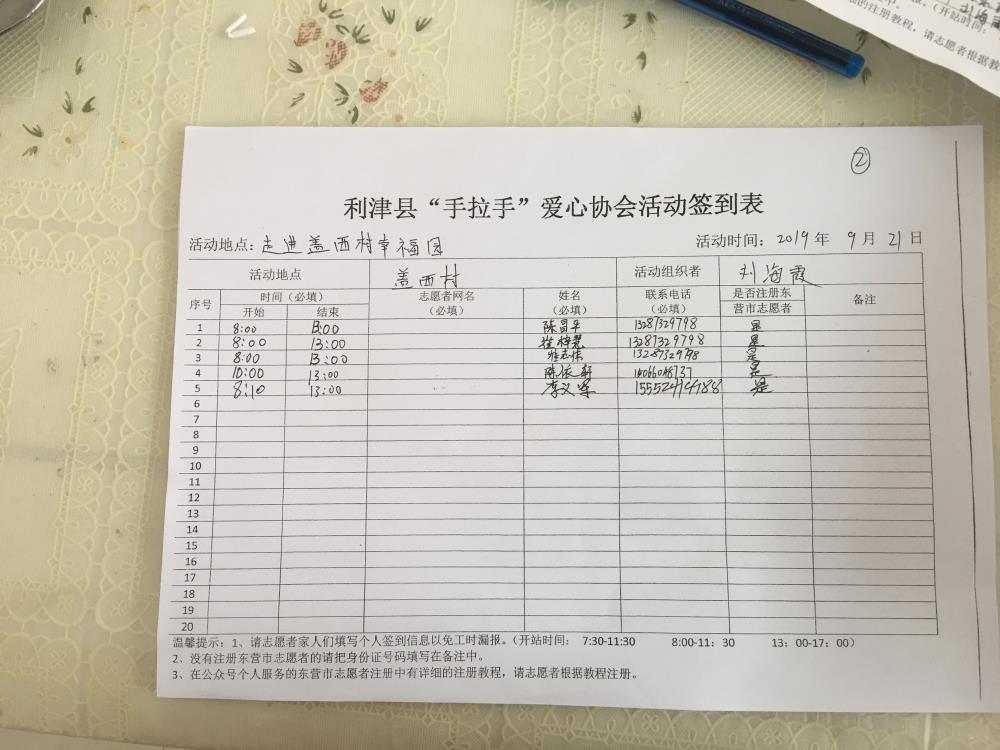 ②
利津县“手拉手”爱心协会活动签到表
活动地点：走进盖西村幸福园 活动时间：2019年 9月 21日
活动地点 盖西村 活动组织者 刘海霞
序号 时间（必填） 志愿者网名（必填） 姓名（必填） 联系电话（必填） 是否注册东营市志愿者 备注
开始 结束
1 8:00 13:00 陈昌平 13287329798 是
2 8:00 13:00 13287329798 是
3 8:00 13:00 13287329798 是
4 10:00 13:00 陈依轩 是
5 8:10 13:00 李义军 15552414988 是
6
7
8
9
10
11
12
13
14
15
16
17
18
19
20
温馨提示：1、请志愿者家人们填写个人签到信息以免工时漏报。（开站时间： 7:30-11:30 8:00-11：30 13：00-17：00）
2、没有注册东营市志愿者的请把身份证号码填写在备注中。
3、在公众号个人服务的东营市志愿者注册中有详细的注册教程，请志愿者根据教程注册。
（开站时间：
的注册教程，请志愿者根据教